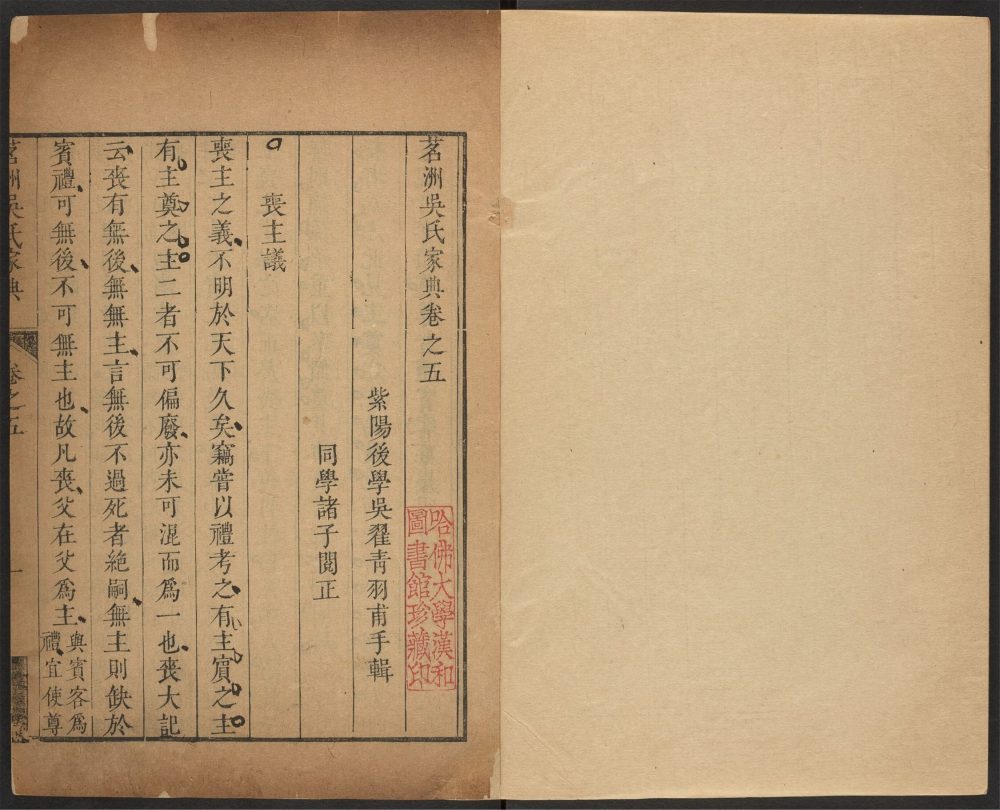 茗洲吳氏家典卷之五
紫陽後學吳翟青羽甫手輯
同學諸子閱正
喪主議
喪主之義不明於天下久矣竊嘗以禮考之有主賓之主
有主奠之主二者不可偏廢亦未可混而爲一也喪大記
云喪有無後無無主言無後不過死者絶嗣無主則缺於
賓禮可無後不可無主也故凡喪父在父爲主與賓客爲
禮宜使尊
茗洲吳氏家典 卷之五 一
哈佛大學漢和
圖書館珍藏印